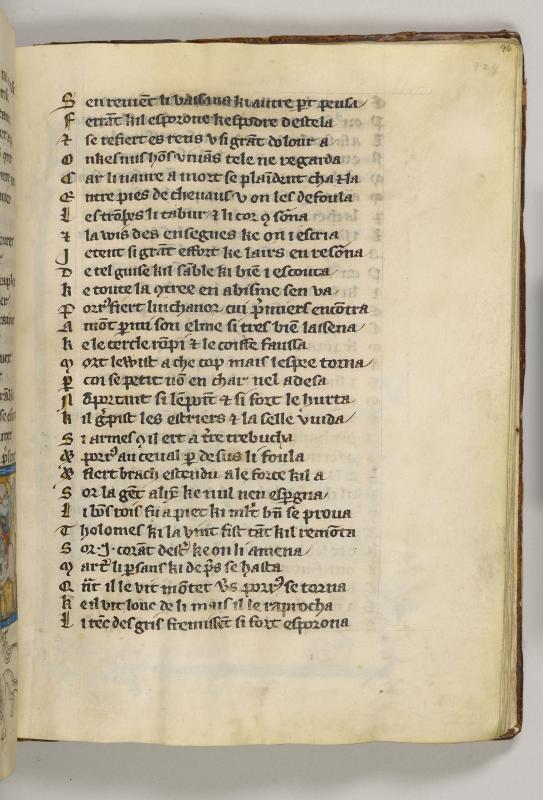 96
128
S en reuient li vassaus ki autre pt pensa
F errāt kil esporone ke spodre destela
⁊ se refiert es rens v si grāt dolour a
O nkes nus hōs viuās tele ne regarda
C ar li naure a mort se plaīdent cha ⁊ la
E ntre pies de cheuaus v on les defoula
L es trōpes li tabur ⁊ li cor ꝯ sōna
⁊ la wis des ensegnes ke on i escria
J etent si grāt effort ke lairs en resōna
D e tel guise kil sāble ki biē i escouta
k e toute la ꝯtree en abisme sen va
P orrꝰ fiert liuchanor cui pͥmiers encōtra
A mōt pͥmi son elme si tres biē lasena
K e le cercle rōpi ⁊ le coiffe faussa
M ort lewist a che cop mais lespee torna
P coi se petit nō en char nel adesa
N āportant si lēpaīt ⁊ si fort le hurta
K il gͥpist les estriers ⁊ la selle vuida
S i armes ꝯ il ert a tͬre trebucha
⁊ porrꝰ au ceual ꝑ desus li foula
⁊ fiert brach estendu a le force kil a
S or la gēt alix̄ ke nul nen espgna
L i bōs rois fu a piet ki ml't bn̄ se proua
T holomes ki la vint fist tāt kil remōta
S or .j. corāt destͥ ke on li amena
M artͥ li psans ki de pͥs se hasta
Q n̄t il le vit mōter vs porrꝰ se torna
K e il vit lonc de li mais il le raprocha
L i rēc des gris fremissēt si fort esporona